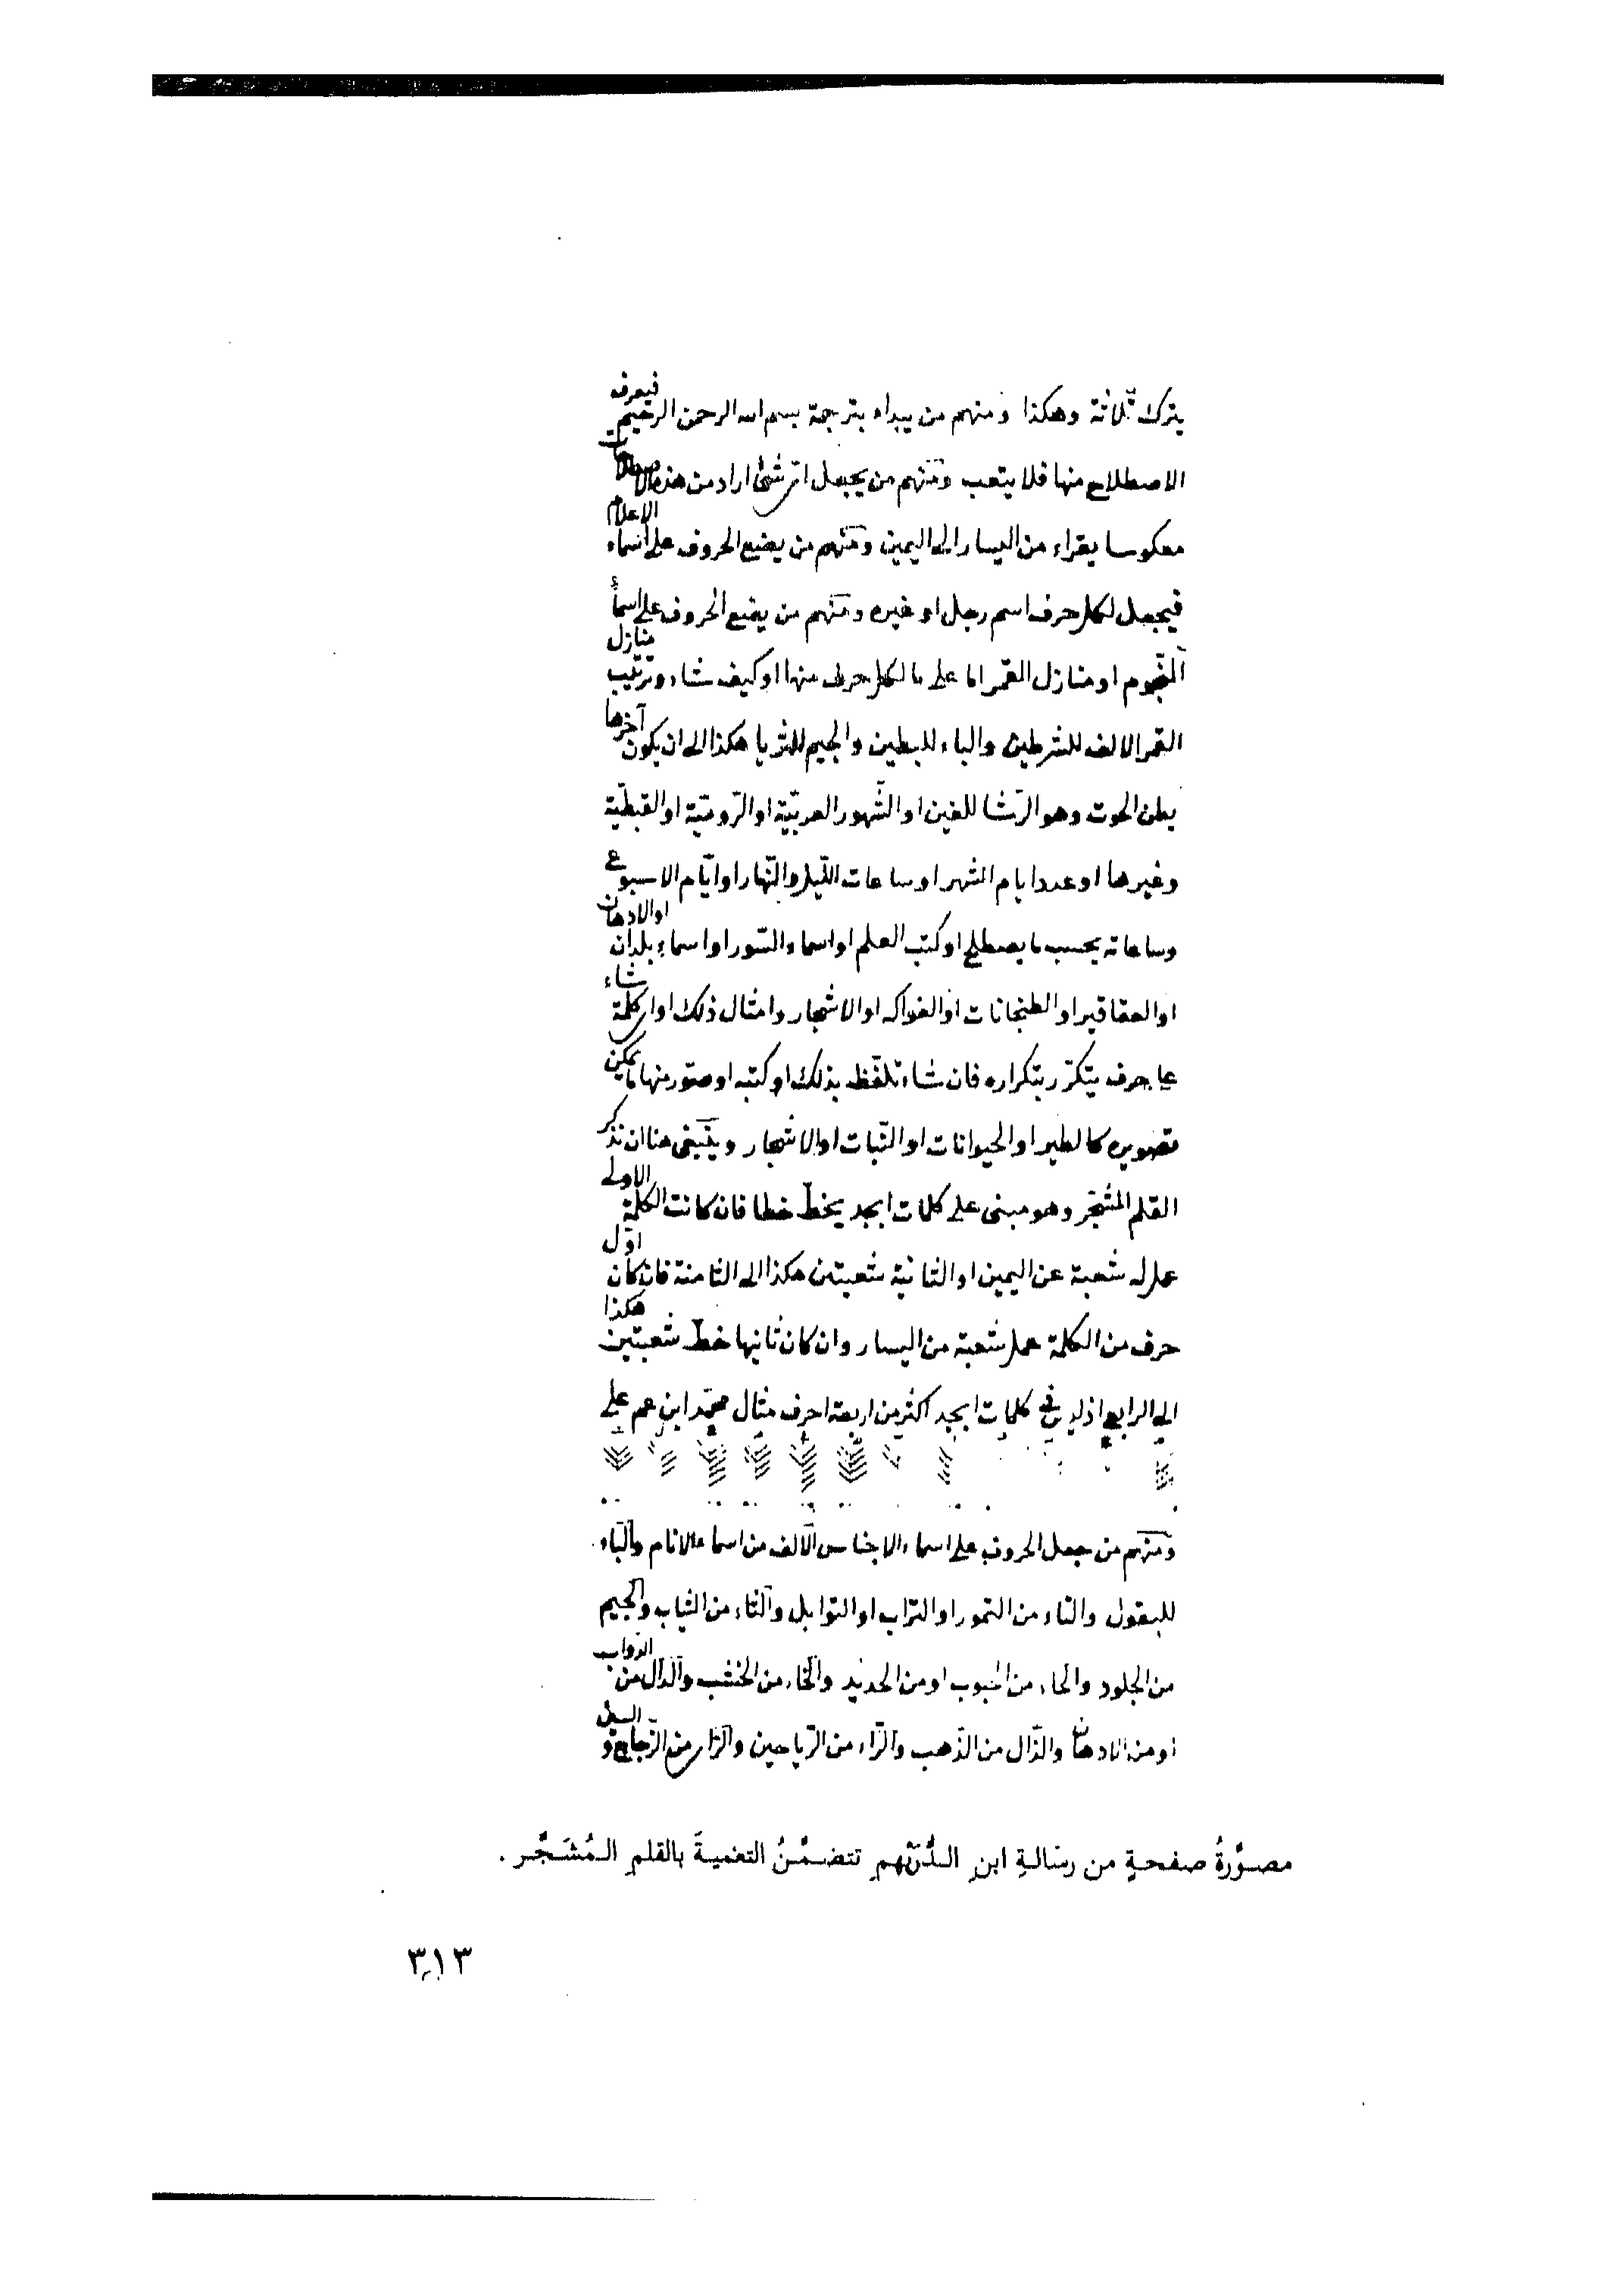 يترك ثلاثة وهكذا ومنهم من يبداء بترجمة بسم الله الرحمن الرحيم فيعرف
الاصطلاح منها فلا يتعب ومنهم من يجعل اي شئ اراد من هذه الاصطلاحات
معكوسا يقراء من اليسار الى اليمين ومنهم من يضع الحروف على اسماء الاعلام
فيجعل لكل حرف اسم رجل او غيره ومنهم من يضع الحروف على اسمأ
النجوم او منازل القمر اما على ما لكل حرف منها او كيف شاء وترتيب منازل
القمر الالف للشرطين والباء للبطين والجيم للثريا هكذا الى ان يكون آخرها
بطن الحوت وهو الرشا للغين او الشّهور العربيّة او الرّوميّة او القبطيّة
وغيرها او عدد ايام الشهر او ساعات اللّيل والنّهار او ايّام الاسبوع
وساعاته بحسب ما يصطلح او كتب العلم او اسماء السّور او اسماء بلدان او الادهان
او العقاقير او الطبخانات او الفواكه او الاشجار وامثال ذلك او اي كلمة شاء
حرف يتكرّر بتكراره فان شاء تلفّظ بذلك او كتبه او صوّر منها ما يمكن
تصويره كالطير او الحيوانات او النّبات او الاشجار وينبغى هنا ان نذكر
القلم المشجّر وهو مبنى على كلمات ابجد يخطّ خطا فان كانت الكلمة الاولى
عمل له شعبة عن اليمين او الثانية شعبتين هكذا الى الثامنة فان كان اوّل
حرف من الكلمة عمل شعبة من اليسار وان كان ثانيها خطّ شعبتين هكذا
الى الرابع اذ ليس في كلمات ابجد اكثر من اربعة احرف مثال محمّد ابن عم على
ومنهم من جعل الحروف على اسماء الاجناس الالف من اسماء الانام والباء
للبقول والتاء من التمور او التراب او التوابل والثاء من الثياب والجيم
من الجلود والحاء من الحبوب او من الحديد والخاء من الخشب والدّال من الدّواب
او من الادهان والذّال من الذّهب والرّاء من الرّياحين والزّاي من الزّجاج و
مصوَّرةُ صفحةٍ من رسالةِ ابنِ الدُّرَيْهِمِ تتضمَّنُ التعميةَ بالقلمِ المُشَجَّر .
٣١٣